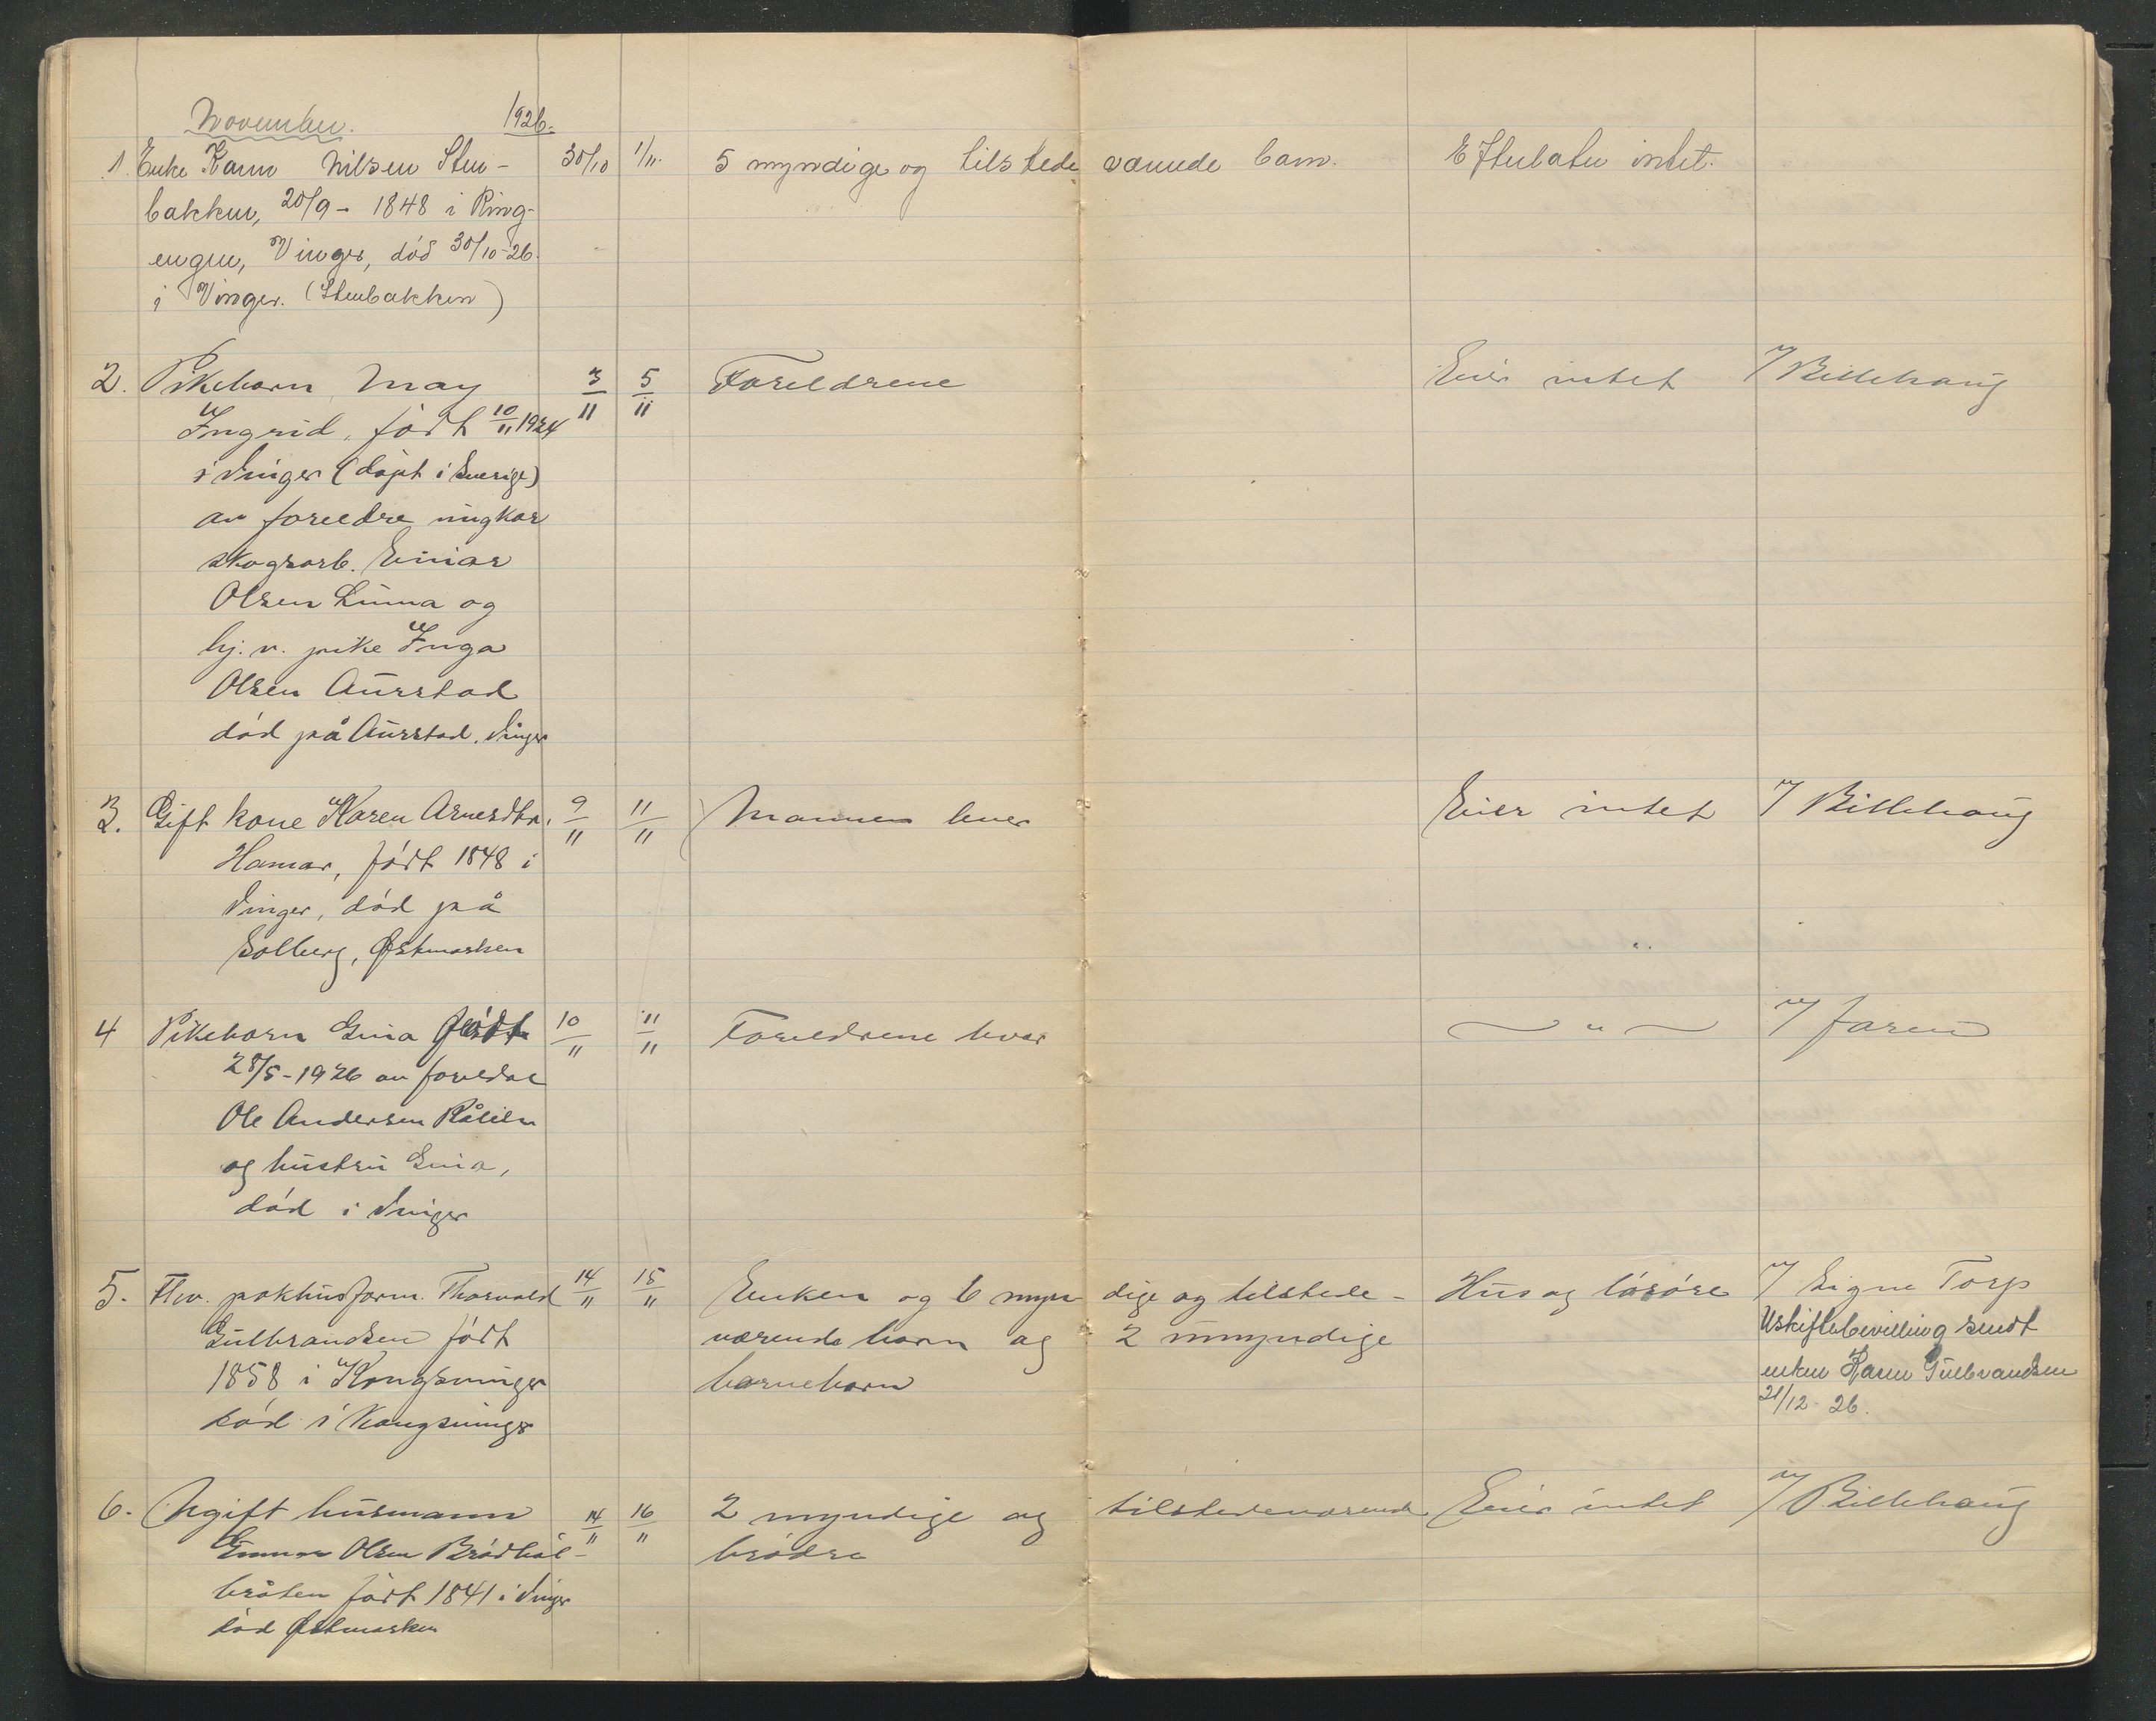 November. 1926.
1. Enke Karen Nilsen Sten- 30/10 1/11. 5 myndige og tilstede værende barn. Efterlater intet.
bakken, 20/9 - 1848 i Ring-
engen, Vinger, død 30/10-26.
i Vinger. (Stenbakken)
2. Pikebarn May 3/11 5/11 Foreldrene Eier intet 7 Billehaug
Ingrid, født 10/11 1924
i Vinger (døpt i Sverige)
av foreldre ungkar
skogsarb. Einar
Olsen Linna og
hj. v. pike Inga
Olsen Aurstad
død på Aurstad, Vinger
3. Gift kone Karen Arnesdtr. 9/11 11/11 Mannen lever Eier intet 7 Billehaug
Hamar, født 1848 i
Vinger, død på
Solberg, Østmarken
4 Pikebarn Gina født 10/11 11/11 Foreldrene lever — " — 7 faren
28/5-1926 av foreldre
Ole Andersen
og hustru Gina,
død i Vinger
5. Fhv. pakhusform. Thorvald 14/11 15/11 Enken og 6 myn dige og tilstede- Hus og løsøre 7 Signe Torp
Gulbrandsen født værende barn og 2 umyndige Uskiftebevilling sendt
1858 i Kongsvinger barnebarn enken Karen Gulbrandsen
død i Kongsvinger 21/12-26.
6. Ugift husmann 14/11 16/11 2 myndige og tilstedeværende Eier intet 7 Billehaug
Gunnar Olsen Brødbøl- brødre
bråten født 1841 i Vinger
død Østmarken